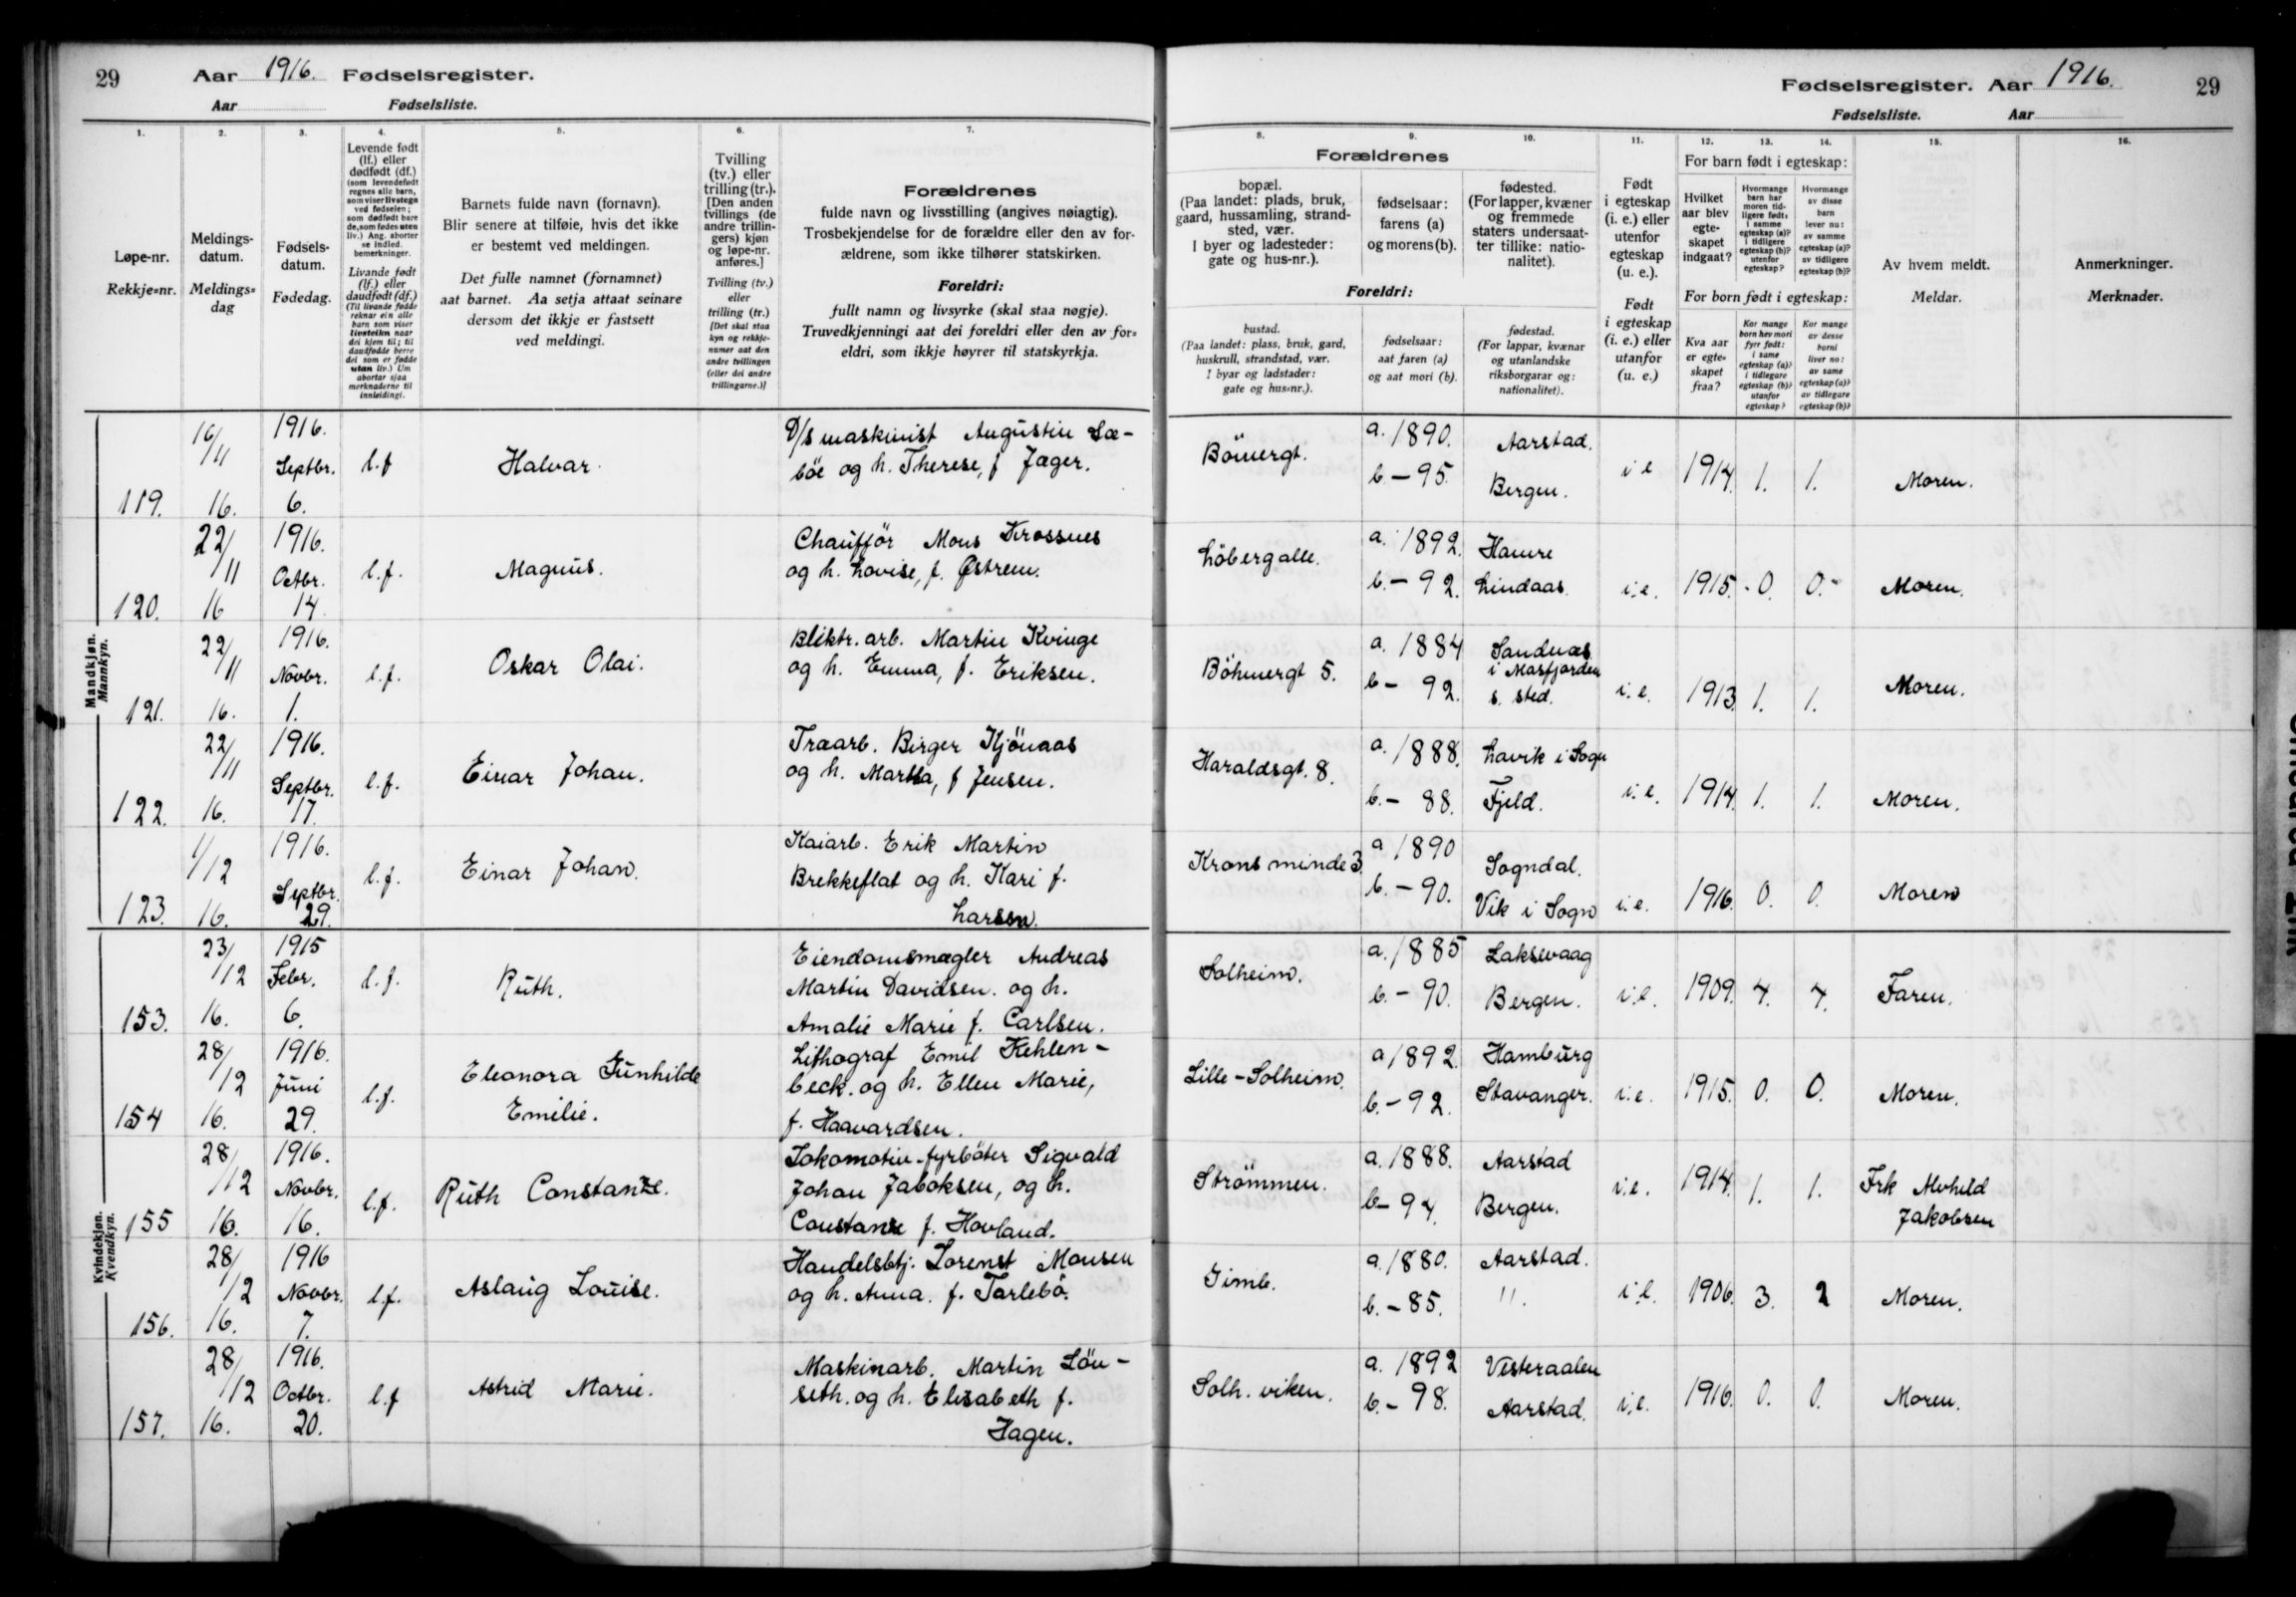 29 Aar 1916. Fødselsregister.
Aar Fødselsliste.
1. 2. 3. 4. 5. 6. 7.
Løpe-nr.
Rekkje=nr.
Meldings-
datum.
Meldings=
dag
Fødsels-
datum.
Fødedag.
Levende født
(lf.) eller
dødfødt (df.)
(som levendefødt
regnes alle barn,
som viser livstegn
ved fødselen;
som dødfødt bare
de, som fødes uten
liv.) Ang. aborter
se indled.
bemerkninger.
Livande født
(lf.) eller
daudfødt (df.)
(Til livande fødde
reknar ein alle
barn som viser
livsteikn naar
dei kjem til; til
daudfødde berre
dei som er fødde
utan liv.) Um
abortar sjaa
merknaderne til
innleidingi.
Barnets fulde navn (fornavn).
Blir senere at tilføie, hvis det ikke
er bestemt ved meldingen.
Det fulle namnet (fornamnet)
aat barnet. Aa setja attaat seinare
dersom det ikkje er fastsett
ved meldingi.
Tvilling
(tv.) eller
trilling (tr.).
[Den anden
tvillings (de
andre trillin-
gers) kjøn
og løpe-nr.
anføres.]
Tvilling (tv.)
eller
trilling (tr.)
[Det skal staa
kyn og rekkje-
numer aat den
andre tvillingen
(eller dei andre
trillingarne.)]
Forældrenes
fulde navn og livsstilling (angives nøiagtig).
Trosbekjendelse for de forældre eller den av for-
ældrene, som ikke tilhører statskirken.
Foreldri:
fullt namn og livsyrke (skal staa nøgje).
Truvedkjenningi aat dei foreldri eller den av for=
eldri, som ikkje høyrer til statskyrkja.
Mandkjøn.
Mannkyn.
119. 16/11 16. 1916. Septbr. 6. l.f Halvar. D/s maskinist Augustin Sæ-
bøe og h. Therese, f Jæger.
120. 22/11 16 1916. Octbr. 14. l.f. Magnus. Chaufför Mons Krossnes
og h. Lovise, f. Østrem.
121. 22/11 16. 1916. Novbr. 1. l.f. Oskar Olai. Bliktr. arb. Martin Kvinge
og h. Emma, f. Eriksen.
122. 22/11 16. 1916. Septbr. 17. l.f. Einar Johan. Træarb. Birger Kjönaas
og h. Martha, f Jensen.
123. 1/12 16. 1916. Septbr. 29. l.f. Einar Johan. Kaiarb. Erik Martin
Brekkeflat og h. Kari f.
Larsen.
Kvindekjøn.
Kvendkyn.
153. 23/12 16. 1915 Febr. 6. l.f. Ruth. Eiendomsmægler Andreas
Martin Davidsen. og h.
Amalie Marie f. Carlsen.
154 28/12 16. 1916. Juni 29. l.f. Eleonora Gunhilde
Emilie. Lithograf Emil Kehlen-
beck. og h. Ellen Marie,
f. Haavardsen.
155 28/12 16. 1916. Novbr. 16. l.f. Ruth Constanze. Lokomotiv-fyrböter Sigvald
Johan Jaboksen, og h.
Constanze f. Hovland.
156. 28/12 16. 1916 Novbr. 7. l.f. Aslaug Louise. Handelsbtj. Lorenst Monsen
og h. Anna. f. Tarlebö.
157. 28/12 16. 1916. Octbr. 20. l.f Astrid Marie. Maskinarb. Martin Lön-
seth. og h. Elisabeth f.
Hagen.
Fødselsregister. Aar 1916. 29
Fødselsliste. Aar
8. 9. 10. 11. 12. 13. 14. 15. 16.
Forældrenes
bopæl.
(Paa landet: plads, bruk,
gaard, hussamling, strand-
sted, vær.
I byer og ladesteder:
gate og hus-nr.).
fødselsaar:
farens (a)
og morens (b).
fødested.
(For lapper, kvæner
og fremmede
staters undersaat-
ter tillike: natio-
nalitet).
Foreldri:
bustad.
(Paa landet: plass, bruk, gard,
huskrull, strandstad, vær.
I byar og ladstader:
gate og hus=nr.).
fødselsaar:
aat faren (a)
og aat mori (b).
fødestad.
(For lappar, kvænar
og utanlandske
riksborgarar og:
nationalitet).
Født
i egteskap
(i. e.) eller
utenfor
egteskap
(u. e.).
Født
i egteskap
(i. e.) eller
utanfor
(u. e.)
For barn født i egteskap:
Hvilket
aar blev
egte-
skapet
indgaat?
Hvormange
barn har
moren tid-
ligere født:
i samme
egteskap (a)?
i tidligere
egteskap (b)?
utenfor
egteskap?
Hvormange
av disse
barn
lever nu:
av samme
egteskap (a)?
av tidligere
egteskap (b)?
For born født i egteskap:
Kva aar
er egte-
skapet
fraa?
Kor mange
born hev mori
fyrr født:
i same
egteskap (a)?
i tidlegare
egteskap (b)?
utanfor
egteskap?
Kor mange
av desse
borni
liver no:
av same
egteskap (a)?
av tidlegare
egteskap (b)?
Av hvem meldt.
Meldar.
Anmerkninger.
Merknader.
Bömergt. a. 1890. b. - 95. Aarstad. Bergen. i e 1914. 1. 1. Moren.
Löbergalle. a. 1892. b. - 92. Hamre Lindaas. i.e. 1915. 0. 0. Moren.
Böhmergt 5. a. 1884 b - 92. Sandnæs
i Masfjorden
s. sted. i.e. 1913. 1. 1. Moren.
Haraldsgt. 8. a. 1888. b. - 88. Lavik i Sogn Fjeld. i.e. 1914. 1. 1. Moren.
Krons minde 3. a 1890 b. - 90. Sogndal. Vik i Sogn i.e. 1916. 0. 0. Moren
Solheim. a. 1885 b. - 90. Laksevaag Bergen. i.e. 1909. 4. 4. Faren.
Lille-Solheim. a 1892. b. - 92. Hamburg Stavanger. i.e. 1915. 0. 0. Moren.
Strömmen. a. 1888. b - 94. Aarstad Bergen. i.e. 1914. 1. 1. Frk Alvhild
Jakobsen
Gimle. a. 1880. b. - 85. Aarstad. " i.e. 1906. 3. 2 Moren.
Solh. viken. a. 1892 b. - 98. Vesteraalen Aarstad. i.e. 1916. 0. 0. Moren.